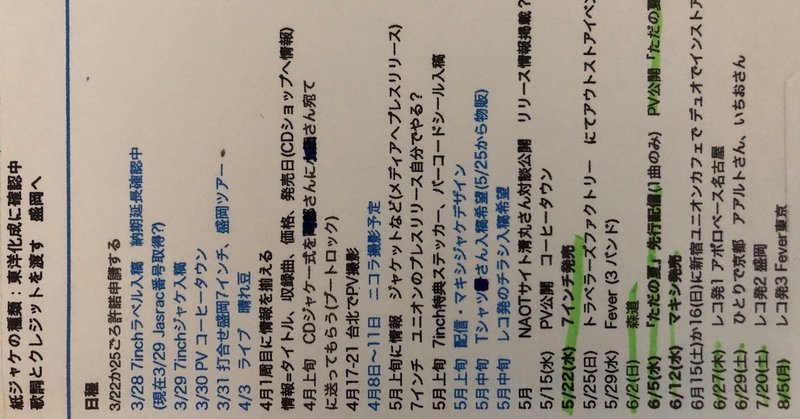 紙ジャケの種類：東洋化成に確認中
歌詞とクレジットを渡す　盛岡へ
日程
3/22か25ごろ許諾申請する
3/28 7inchラベル入稿　納期延長確認中
(現在3/29 Jasrac番号取得?)
3/29 7inchジャケ入稿
3/30 PV コーヒータウン
3/31 打合せ盛岡7インチ、盛岡ツアー
4/3　ライブ　晴れ豆
4月1周目に情報を揃える
情報=タイトル、収録曲、価格、発売日(CDショップへ情報)
4月上旬　CDジャケ一式を さんに さん宛て
に送ってもらう(ブートロック)
4月17-21 台北でPV撮影
4月8日〜11日　ニコラ撮影予定
5月上旬に情報　ジャケットなど(メディアへプレスリリース)
7インチ　ユニオンのプレスリリース自分でやる？
5月上旬　7inch特典ステッカー、バーコードシール入稿
5月上旬　配信・マキシジャケデザイン
5月中旬　Tシャツ さん入稿希望(5/25から物販)
5月中旬　レコ発のチラシ入稿希望
5月　NAOTサイト溝丸さん対談公開　リリース情報掲載？
5/15(水)　PV公開　コーヒータウン
5/22(水)　7インチ発売
5/25(日)　トラベラーズファクトリー　にてアウトストアイベン
5/29(水)　Fever (3 バンド)
6/2(日)　森道
6/5(水)　「ただの夏」先行配信(1曲のみ)　PV公開「ただの夏
6/12(水)　マキシ発売
6月15(土)か16(日)に新宿ユニオンカフェで デュオでインストア
6/27(木)　レコ発1 アポロベース名古屋
6/29(土)　ひとりで京都　アアルトさん、いちおさん
7/20(土)　レコ発2 盛岡
8/5(月)　レコ発3 Fever東京